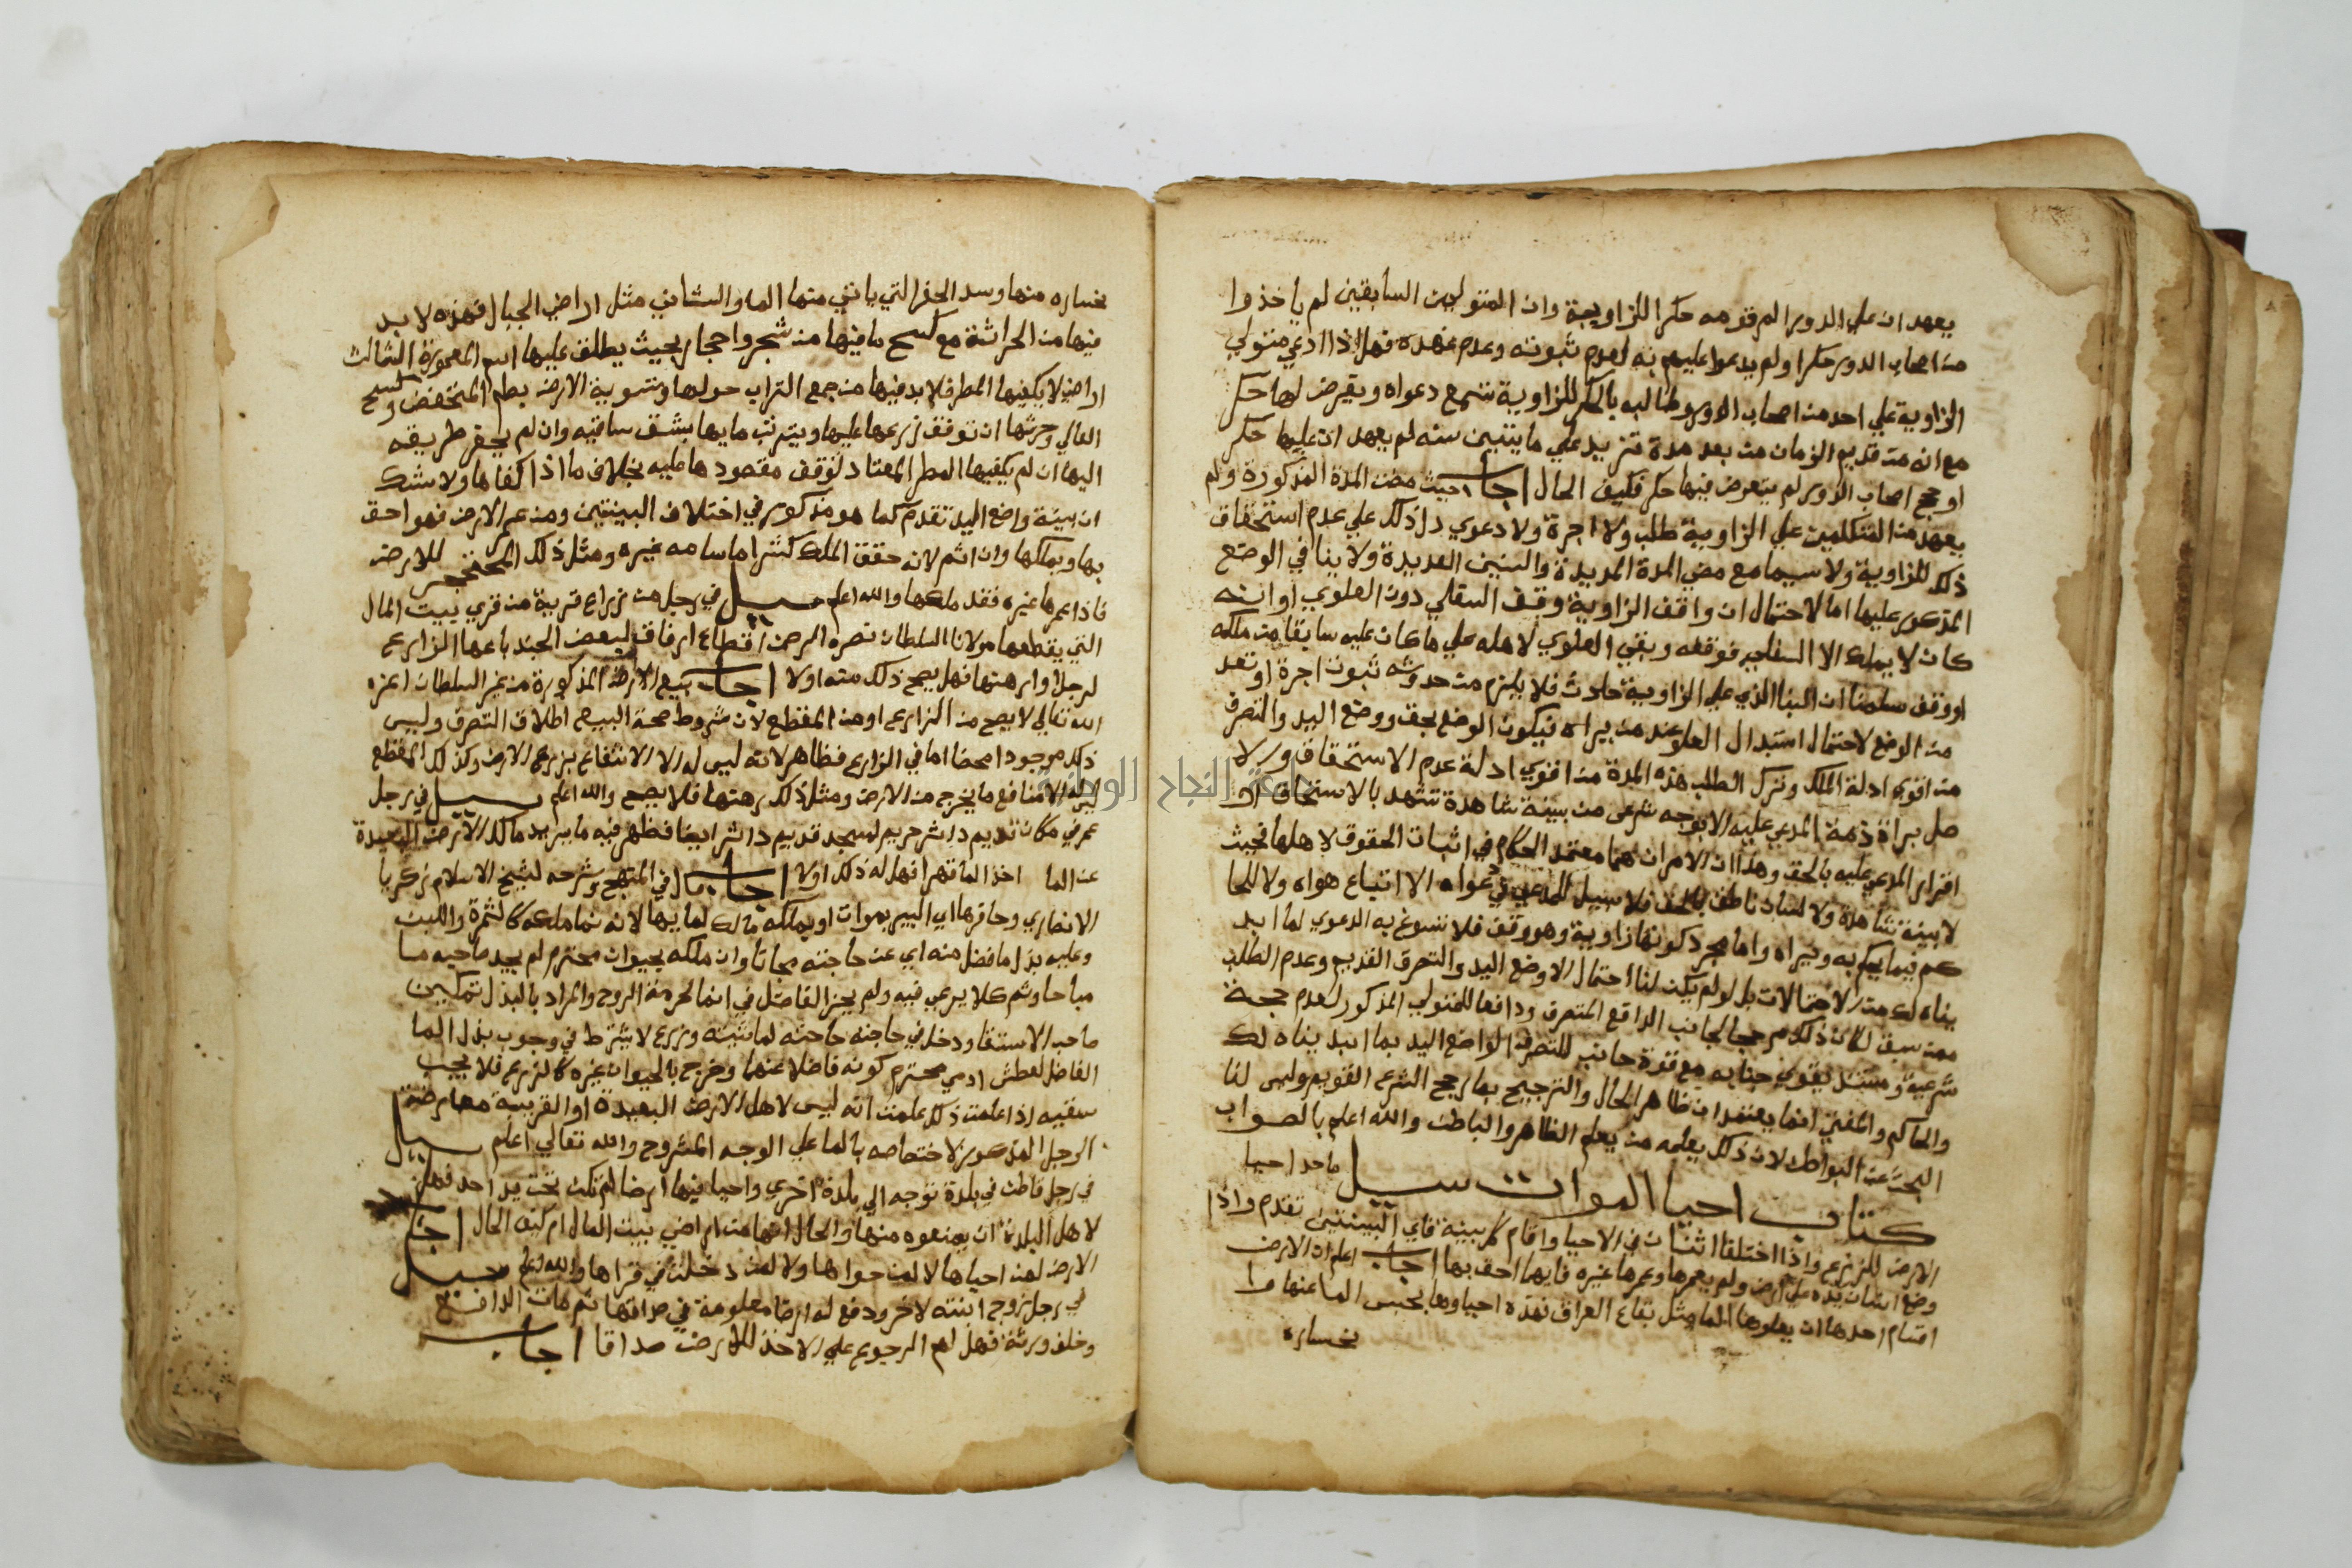 يعهد ان علي الدور المرقومه حكرا للزاوية وان المتولين السابقين لم ياخذوا
من اصحاب الدور حكرا ولم يدعوا عليهم به لعدم ثبوته وعدم عهده فهل اذا ادعي متولي
الزاوية علي احد من اصحاب الدور وطالبه بالحكر للزاوية تسمع دعواه ويفرض لها حكر
مع انه من قديم الزمان من بعد مدة تزيد علي مايتين سنه لم يعهد ان عليها حكر
او حجج اصحاب الدور لم يتعرض فيها حكر فكيف الحال اجاب حيث مضت المدة المذكورة ولم
يعهد من المتكلمين علي الزاوية طلب ولا اجرة ولا دعوي دل ذلك علي عدم استحقاق
ذلك للزاوية ولا سيما مع مضي المدة المديدة والسنين العديدة ولا ينافي الوضع
المذكور عليها اما لاحتمال ان واقف الزاوية وقف السفلي دون العلوي او انه
كان لا يملك الا السفلي فوقفه وبقي العلوي لاهله علي ما كان عليه سابقا من ملكه
او وقف سلمنا ان البنا الذي علي الزاوية حادث فلا يلزم من حدوثه ثبوت اجرة او تعد
من الوضع لاحتمال استبدال العلو عند من يراه فيكون الوضع بحق ووضع اليد والتصرف
من اقوي ادلة الملك وترك الطلب هذه المدة من اقوي ادلة عدم الاستحقاق ولا
صل براة ذمة المدعي عليه الا بوجه شرعي من بينة شاهدة تشهد بالاستحقاق او
اقرار المدعي عليه بالحق وهذا ان الامران هما معتمد الحكام في اثبات الحقوق لاهلها فحيث
لا بينة شاهدة ولا لسان ناطق بالحق فلا سبيل للمدعي في دعواه الا اتباع هواه ولا للحا
كم فيما يحكم به ويراه واما مجرد كونها زاوية وهو وقف فلا تسوغ به الدعوي لما ابد
يناه لك من الاحتمالات بل لو لم يكن لنا احتمال الا وضع اليد والتصرف القديم وعدم الطلب
ممن سبق لكان ذلك مرجحا لجانب الواقع المتصرف ودافعا للمتولي المذكور لعدم حجة
شرعية ومستند يقوي جنابه مع قوة جانب المتصرف الواضع اليد بما ابديناه لك
والحاكم والمفتي انما يعتمدان ظاهر الحال والترجيح بما رجح الشرع القويم وليس لنا
البحث عن البواطن لان ذلك يعلمه من يعلم الظاهر والباطن والله اعلم بالصواب
كتاب احيا الموات سيل ما حد احيا
الارض للزرع واذا اختلفا اثنان في الاحيا واقام كل بينة فاي البينتين تقدم واذا
وضع انسان يده علي ارض ولم يعمرها وعمرها غيره فايهما احق بها اجاب اعلم ان الارض
اقسام احدها ان يعلوها الما مثل بقاع العراق فهذه احياوها بحبس الما عنها
بخساره
بخساره منها وسد الحفر التي ياتي منها الما والثاني مثل اراضي الجبال فهذه لا بد
فيها من الحراثة مع كسح ما فيها من شجر واحجار بحيث يطلق عليها اسم المعمورة الثالث
اراضي لا يكفيها المطر فلا بد فيها من جمع التراب حولها وتسوية الارض بطم المنخفض وكسح
العالي وحرثها ان توقف زرعها عليها ويترتب مايها بشق ساقية وان لم يحفر طريقه
اليها ان لم يكفيها المطر المعتاد لتوقف مقصودها عليه بخلاف ما اذا كفاها ولا شك
ان بينة واضع اليد تقدم كما هو مذكور في اختلاف البينتين ومن عمر الارض فهو احق
بها ويملكها وان اثم لانه حقق الملك كشرا ما سامه غيره ومثل ذلك المحتجر للارض
فاذا عمرها غيره فقد ملكها والله اعلم سيل في رجل من زراع قرية من قري بيت المال
التي يقطعها مولانا السلطان نصره الرحمن اقطاع ارفاق لبعض الجند باعها الزارع
لرجل او ارهنها فهل يصح ذلك منه اولا اجاب بيع الارض المذكورة من غير السلطان اعزه
الله تعالي لا يصح من الزارع او من المقطع لان شروط صحة البيع اطلاق التصرف وليس
ذلك موجودا محضا اما في الزارع فظاهر لانه ليس له الا الانتفاع بزرع الارض وكذلك المقطع
ليس له الا منافع ما يخرج من الارض ومثل ذلك رهنها فلا يصح والله اعلم سيل في رجل
عمر في مكان قديم داثر حريم لمسجد قديم داثر ايضا فظهر فيه ما يريد مالك الارض البعيدة
عن الما اخذ الما قهرا فهل له ذلك اولا اجاب قال في المنهج وشرحه لشيخ الاسلام زكريا
الانصاري وحافرها اي البير بموات او يملكه مالك لمايها لانه نما ملكه كالثمرة واللبن
وعليه بذل ما فضل منه اي عن حاجته مجانا وان ملكه لحيوان محترم لم يجد صاحبه ما
مباحا وثم كلا يرعي فيه ولم يحز الفاضل في انما لحرمة الروح والمراد بالبذل تمكين
صاحب الاستقا ودخل في حاجته حاجته لماشيته وزرع لا يشترط في وجوب بذل الما
الفاضل لعطش ادمي محترم كونه فاضلا عنهما وخرج بالحيوان غيره كالزرع فلا يجب
سقيه اذا علمت ذلك علمت انه ليس لاهل الارض البعيدة او القريبة معارضة
الرجل المذكور لاختصاصه بالما علي الوجه المشروح والله تعالي اعلم سيل
في رجل قاطن في بلدة توجه الي بلدة اخري واحيا فيها ارضا لم تكن تحت يد احد فهل
لاهل البلدة ان يمنعوه منها والحال انها من اراضي بيت المال ام كيف الحال اجاب
الارض لمن احياها لا لمن حواها ولا لمن دخلت في قراها والله اعلم سيل
في رجل زوج ابنته لاخر ودفع له ارضا معلومة في صداقها ثم مات الدافع
وخلف ورثة فهل لهم الرجوع علي الاخذ للارض صداقا اجاب
جامعة النجاح الوطنية